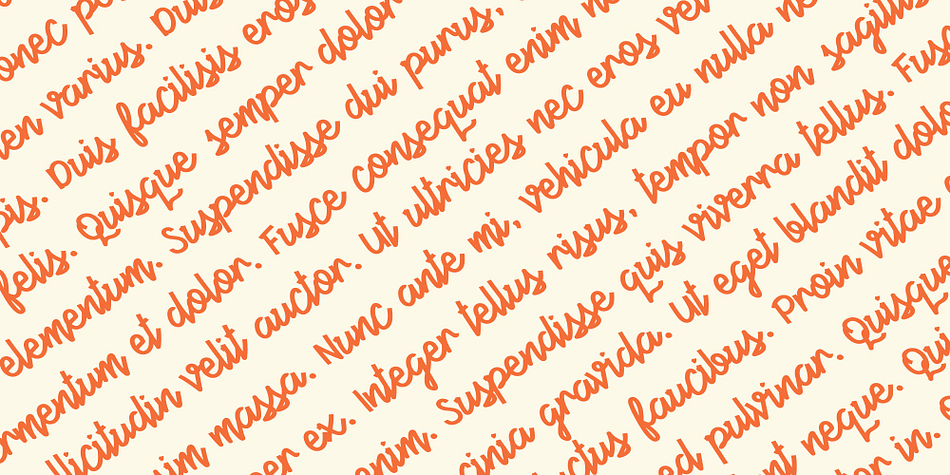 onec
en varius. Duis
pis. Duis facilisis eros
felis. Quisque semper dolor
elementum. Suspendisse dui purus,
rmentum et dolor. Fusce consequat enim
llicitudin velit auctor. Ut ultricies nec eros vel
im massa. Nunc ante mi, vehicula eu nulla ne
er ex. Integer tellus risus, tempor non sagittis
enim. Suspendisse quis viverra tellus. Fusc
cinia gravida. Ut eget blandit dolo
ctus faucibus. Proin vitae
ed pulvinar. Quisque
nt neque. Qui
or in.